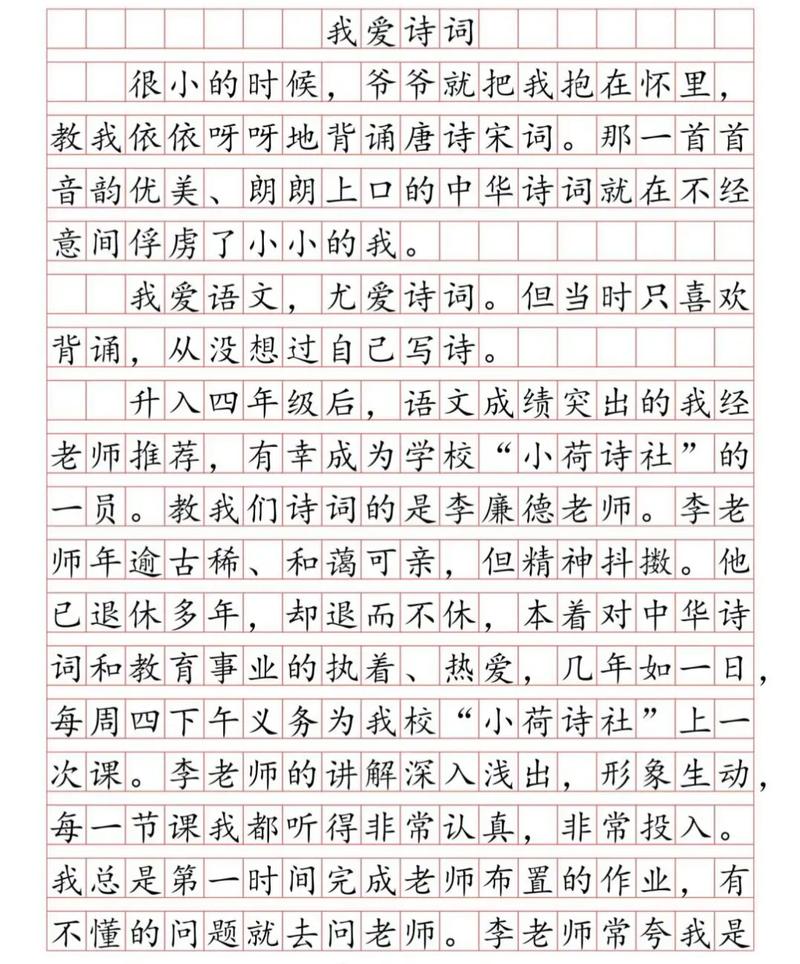 我爱诗词
很小的时候，爷爷就把我抱在怀里，
教我依依呀呀地背诵唐诗宋词。那一首首
音韵优美、朗朗上口的中华诗词就在不经
意间俘虏了小小的我。
我爱语文，尤爱诗词。但当时只喜欢
背诵，从没想过自己写诗。
升入四年级后，语文成绩突出的我经
老师推荐，有幸成为学校“小荷诗社”的
一员。教我们诗词的是李廉德老师。李老
师年逾古稀、和蔼可亲，但精神抖擞。他
已退休多年，却退而不休，本着对中华诗
词和教育事业的执着、热爱，几年如一日，
每周四下午义务为我校“小荷诗社”上一
次课。李老师的讲解深入浅出，形象生动，
每一节课我都听得非常认真，非常投入。
我总是第一时间完成老师布置的作业，有
不懂的问题就去问老师。李老师常夸我是